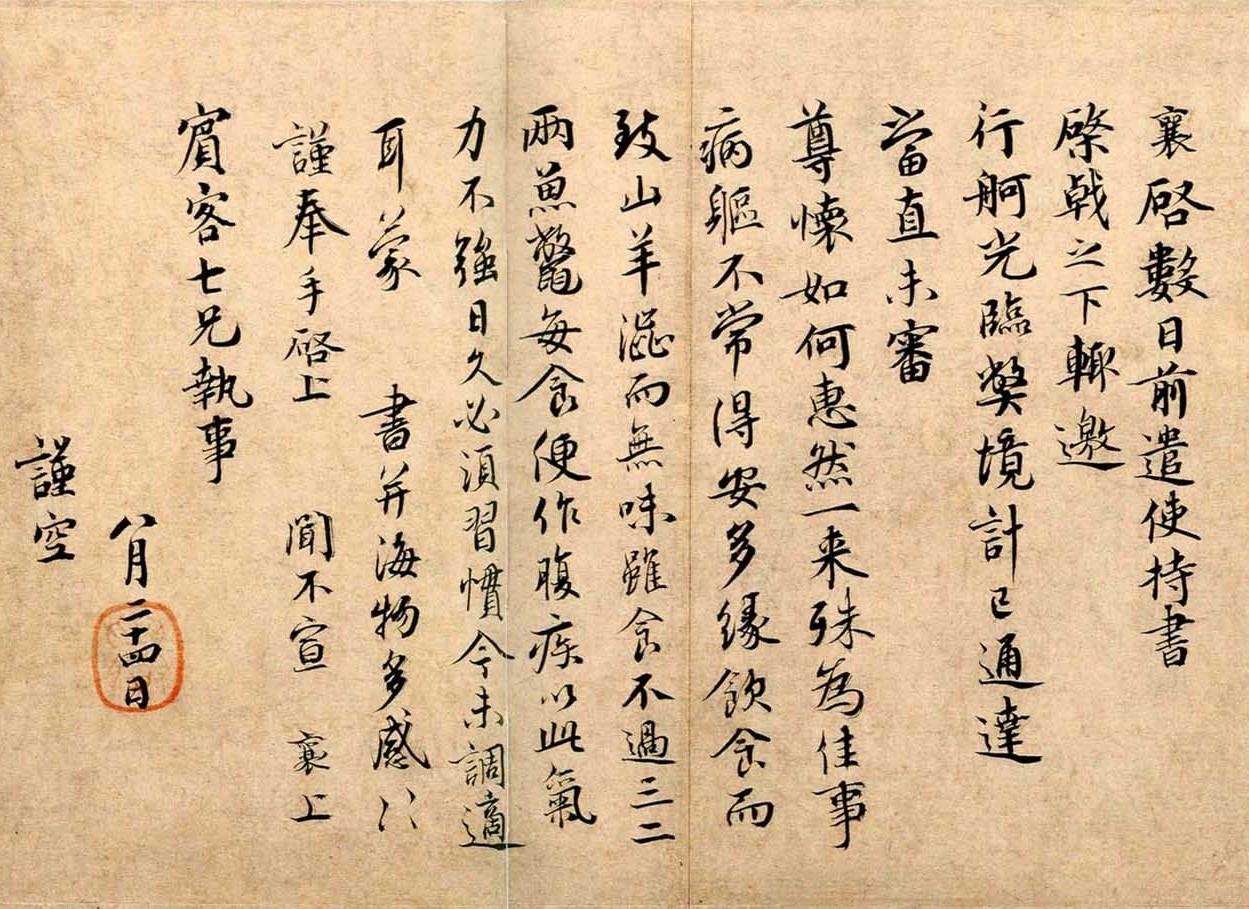 襄啓數日前遣使持書
棨戟之下輒邀
行舸光臨獘境計已通達
當直未審
尊懷如何惠然一来殊為佳事
病軀不常得安多緣飲食而
致山羊澁而無味雖食不過三二
兩魚鱉每食便作腹疾以此氣
力不強日久必須習慣今未調適
耳蒙 書并海物多感〻
謹奉手啓上 聞不宣 襄上
賓客七兄執事
八月二十四日
謹空